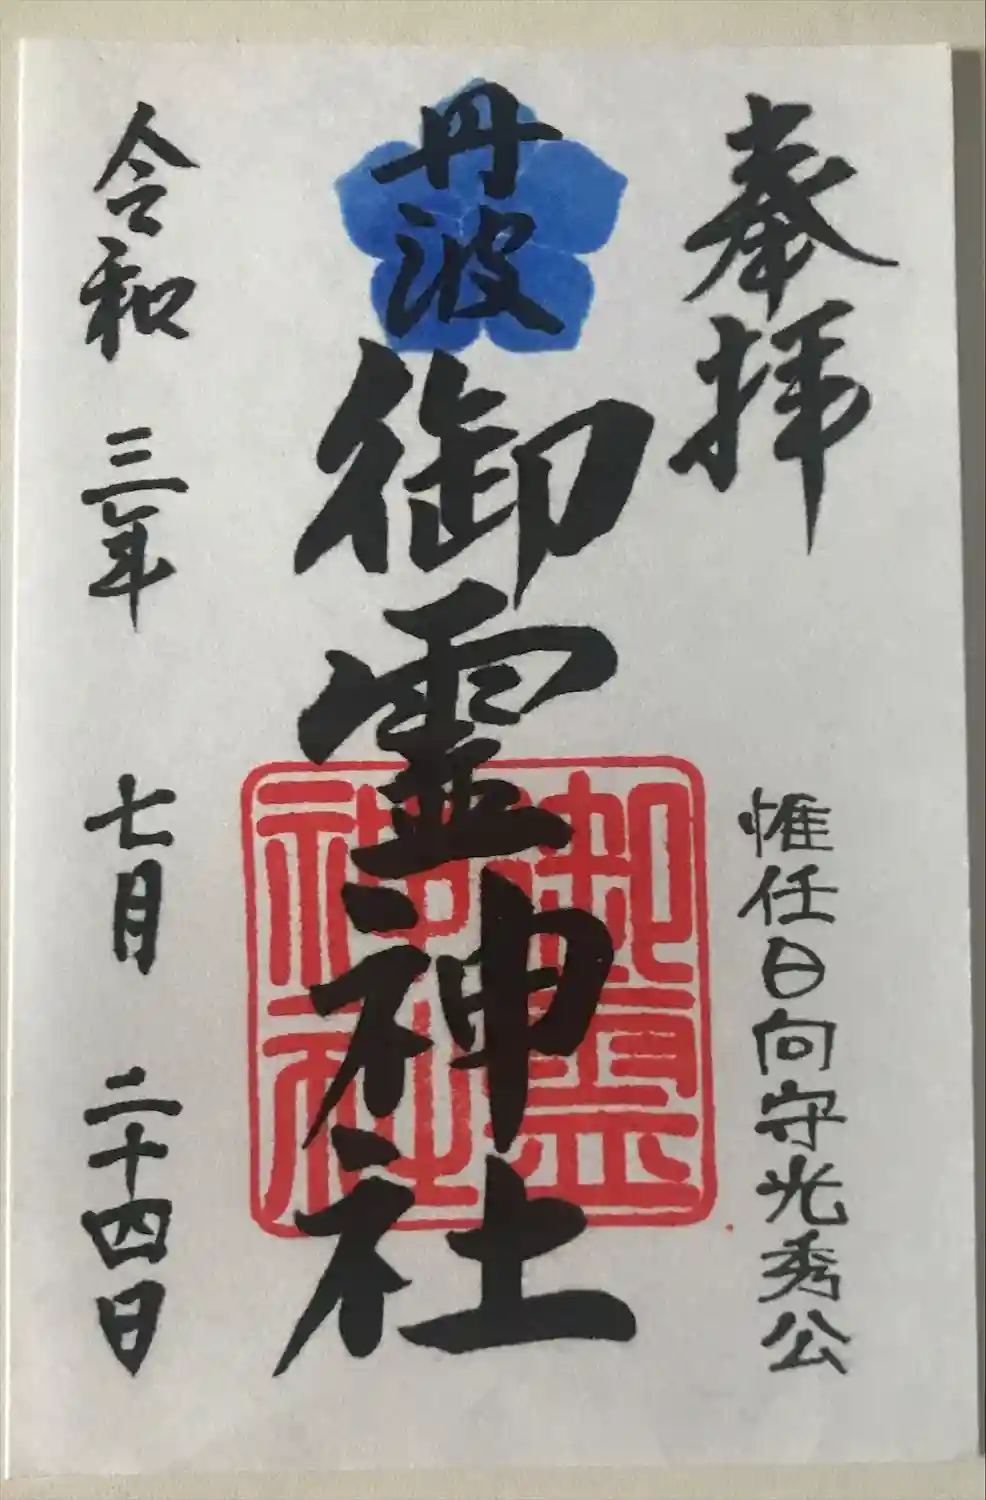 奉拝
惟任日向守光秀公
丹波
御霊神社
御霊
神社
令和三年七月二十四日